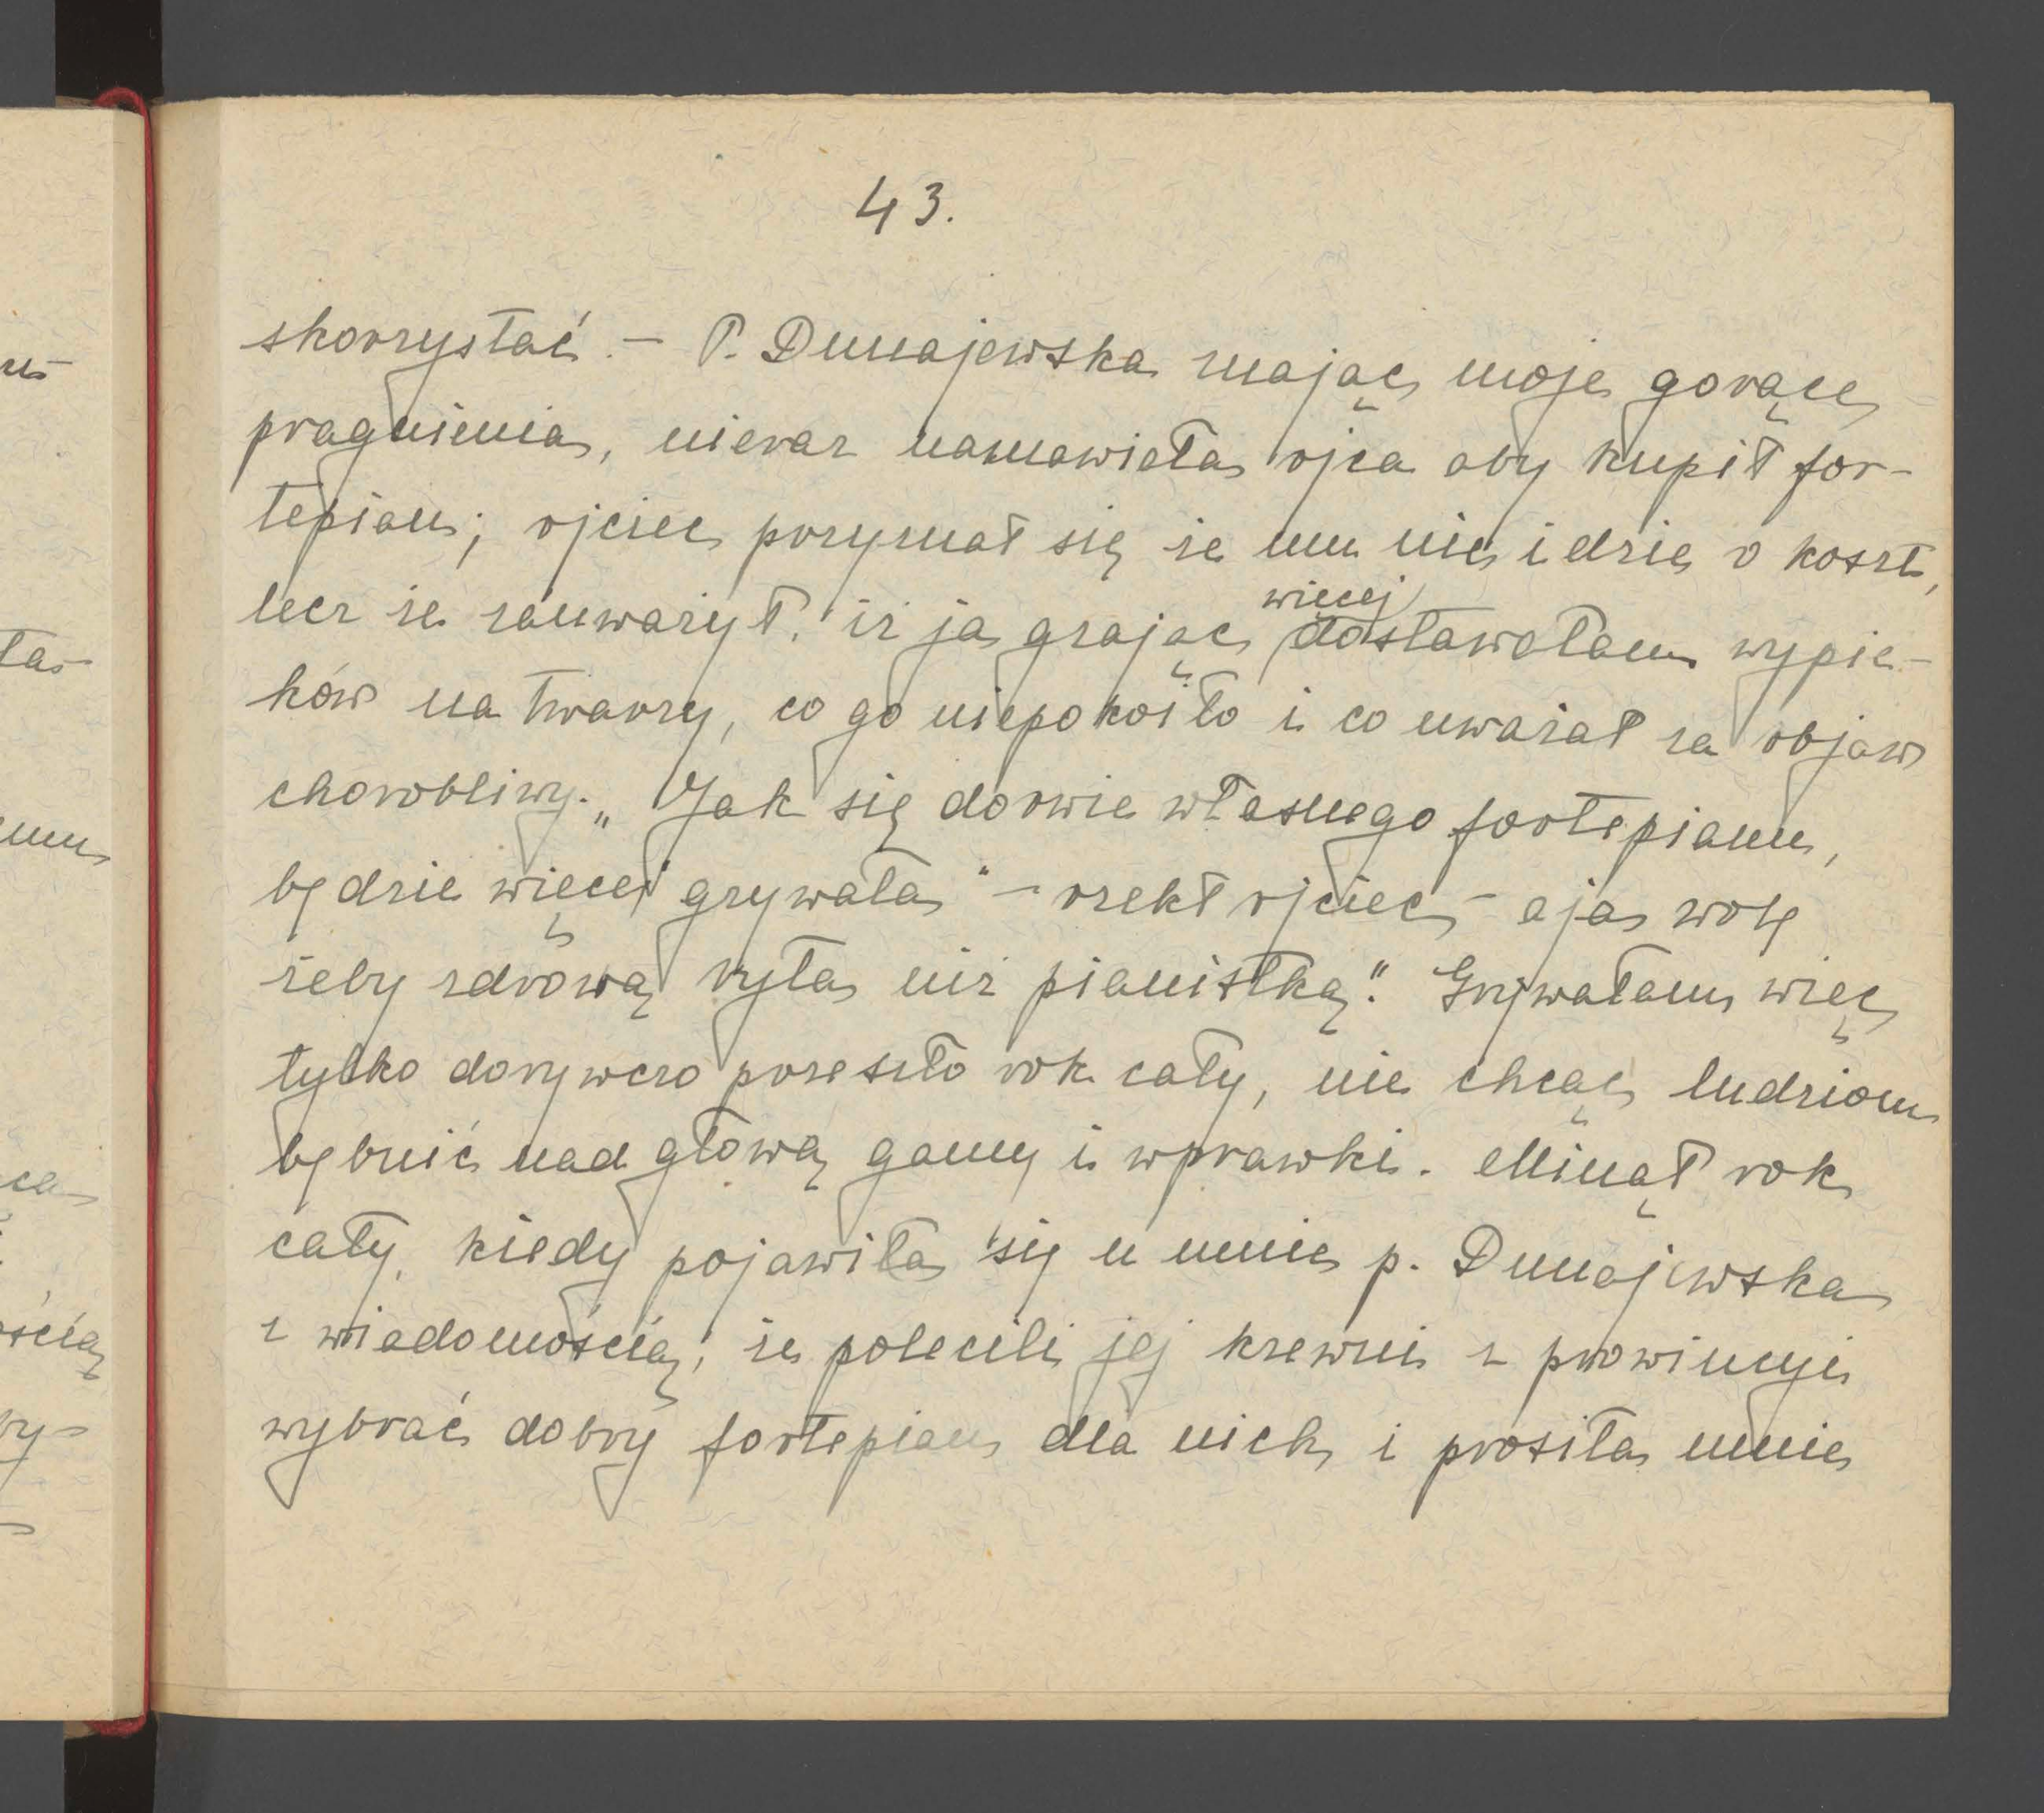 43.
skorzystać. – P. Dunajewska znając moje gorące
pragnienia, nieraz namawiała ojca aby kupił for-
tepian; ojciec przyznał się że mu nie idzie o koszt,
lecz że zauważył, iż ja grając więcej dostawałam wypie-
ków na twarzy, co go niepokoiło i co uważał za objaw
chorobliwy. „Jak się dorwie własnego fortepianu,
będzie więcej grywała" – rzekł ojciec – a ja wolę
żeby zdrową była niż pianistką." Grywałam więc
tylko dorywczo przeszło rok cały, nie chcąc ludziom
bębnić nad głową gamy i wprawki. Minął rok
cały, kiedy pojawiła się u mnie p. Dunajewska
z wiadomością, że polecili jej krewni z prowincyi
wybrać dobry fortepian dla nich i prosiła mnie